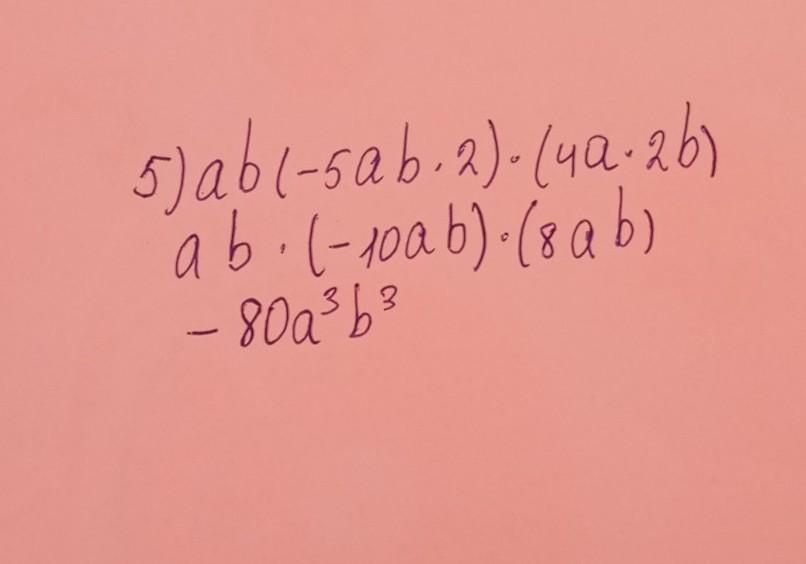 5) ab(-5ab·2)·(4a·2b)
ab·(-10ab)·(8ab)
-80a³b³